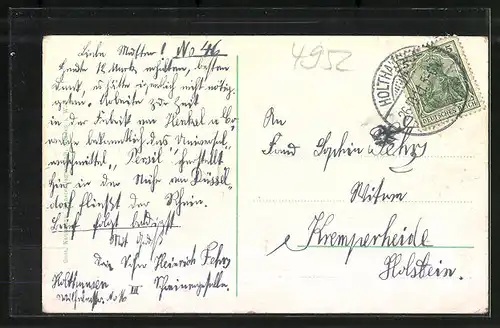 Liebe Mutter! No 46
Heute 12 Mark erhalten, besten
Dank, hätte eigentlich nicht nötig
getan. Arbeite zur Zeit
in der Fabrik von Henkel u Co
welche bekanntlich das Universal
waschmittel „Persil" herstellt
Hier in der Nähe von Düssel
dorf fließt der Rhein.
Brief folgt baldigst
Mit Gruß
Dein Sohn Heinrich Fehrs
Holthausen
No 16 III
4952
HOLTHAUSEN
DEUTSCHES REICH
An
Frau Sophia Fehrs
Witwe
Kremperheide
Holstein.